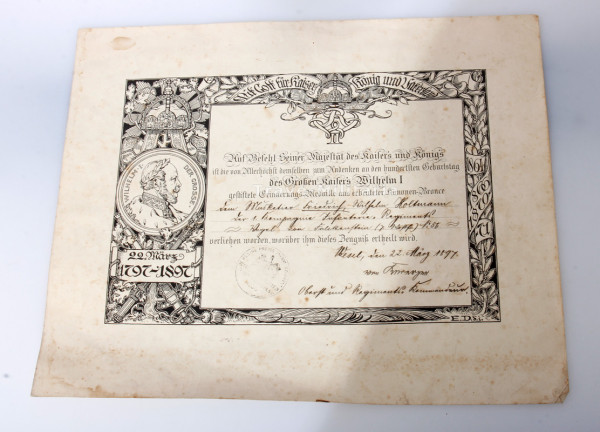 Mit Gott für Kaiser König und Vaterland
Auf Befehl Seiner Majestät des Kaisers und Königs
ist die von Allerhöchst demselben zum Andenken an den hundertsten Geburtstag
des Großen Kaisers Wilhelm I
gestiftete Erinnerungs-Medaille aus erbeuteter Kanonen-Bronce
dem Musketier Friedrich Wilhelm Holtmann
der Compagnie Infanterie-Regiments
Vogel von Falckenstein
verliehen worden, worüber ihm dieses Zeugniß ertheilt wird.
Wesel, den 22 März 1897.
von
Oberst und Regiments Kommandeur
WILHELM DER GROSSE
22. März
1797-1897
1864
E.D.